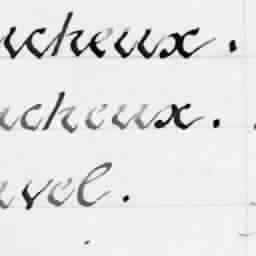 ucheux.
ucheux.
vel.